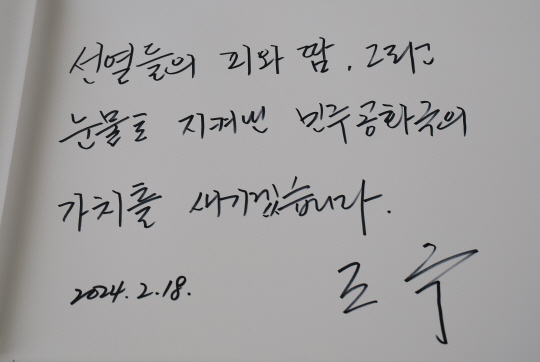 선열들의 피와 땀, 그리고
눈물로 지켜낸 민주공화국의
가치를 새기겠습니다.
2024. 2. 18. 조 국